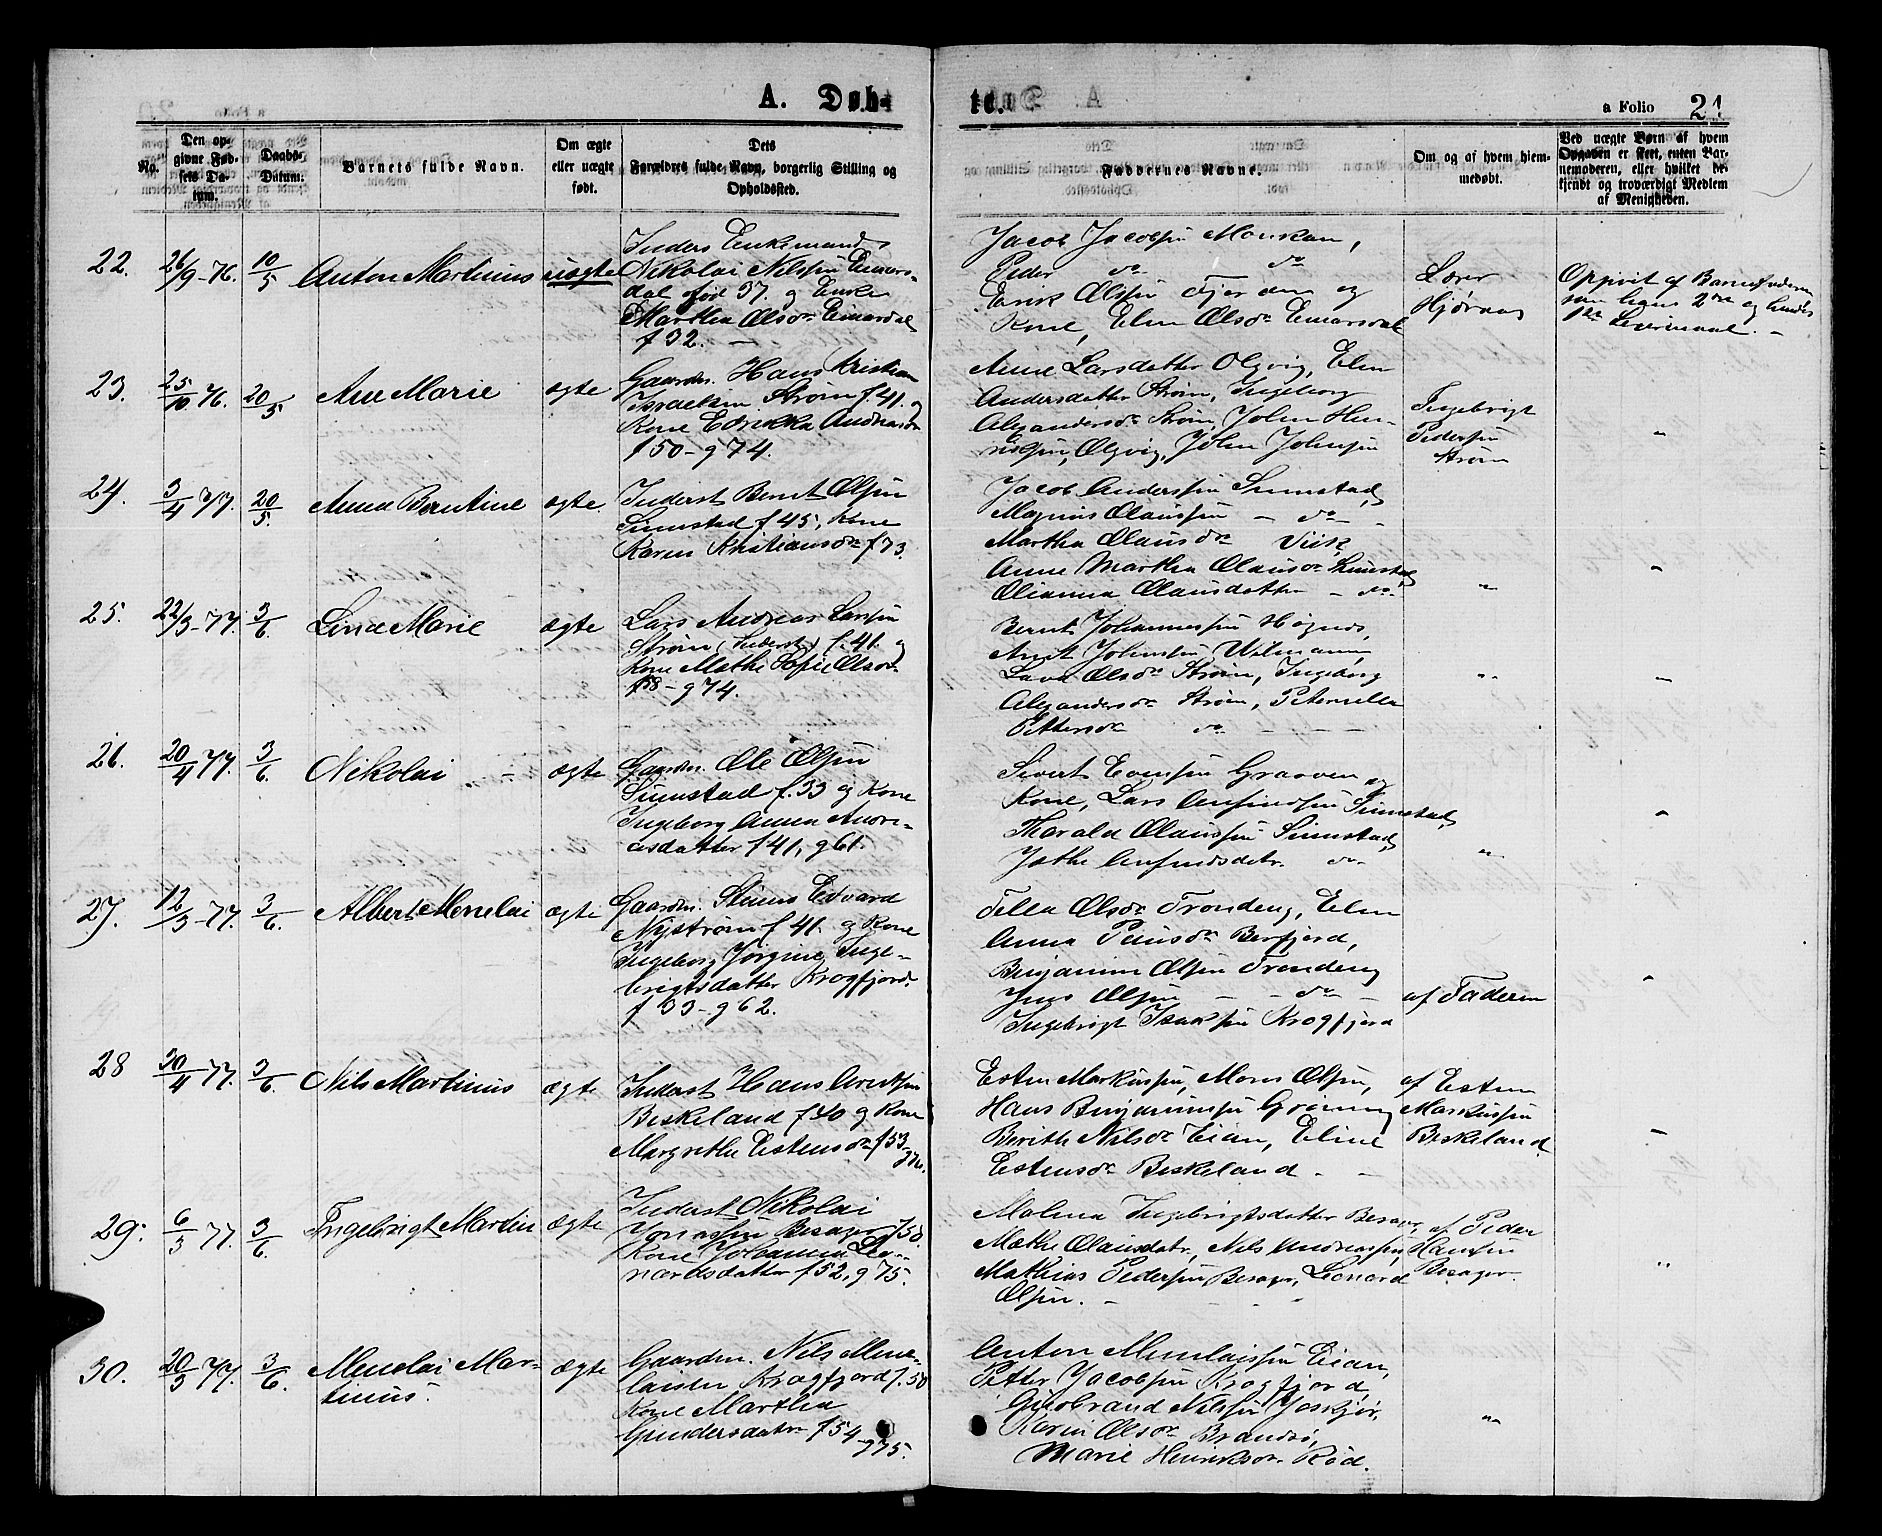 A. Døb-
te.
a Folio 21
No.
Den op-
givne Fød-
sels Da-
tum.
Daabs-
Datum.
Barnets fulde Navn.
Om ægte
eller uægte
født.
Dets
Forældres fulde Navn, borgerlig Stilling og
Opholdssted.
Faddernes Navne.
Om og af hvem hjem-
medøbt.
Ved uægte Børn af hvem
Opgaven er skeet, enten Bar-
nemoderen, eller hvilket be-
kjendt og troværdigt Medlem
af Menigheden.
22. 26/9-76. 10/5 Anton Martinus uægte
Inders Enkemand
Nikolai Nilssen
dal född 37. og Enke
Martha Olsdr.
f 32. —
Jacob Jacobsen
Peder do do
Erik Olsen og
Kone, Elen Olsdr.
Lærer
Opgivet af Barnefaderen
som hans 2det og hendes
1ste Leiermaal. —
23. 25/10 76. 20/5 Ane Marie ægte
Gaardm. Hans Kristian
Israelsen Strøm f 41. og
Kone Edrikka
f 50 - g 74.
Anne Larsdatter Olgvig, Elen
Andersdatter Strøm, Ingeborg
Alexandersdr Strøm, John Hen-
riksen, Olgvig, John Johnsen
Ingebrigt
Pedersen
Strøm
"
24. 3/4 77. 20/5 Anna Berntine ægte
Inderst Bernt Olsen
Sumstad f 45, Kone
Karen Kristiansdr f 73.
Jacob Anderssen Sumstad,
Magnus Olaussen — do —
Martha Olausdr Viik,
Anne Martha Olausdr Sumstad
Olianna Olausdatter — do —
"
"
25. 22/3-77. 3/6. Lina Marie ægte
Lars Andreas Larssen
Strøm (Inderst) f. 41. og
Kone Mathe Sofie Olsdr.
f 58 - g 74.
Bernt Johannessen
Arnt Johnsen
Olsdr Strøm, Ingeborg
Alexandersdr Strøm, Peternella
Pettersdr do — — —
"
—
26. 20/4 77. 3/6. Nikolai ægte
Gaardm. Ole Olsen
Sumstad f. 33 og Kone
Ingeborg Anna Andre-
asdatter f 41, g 61.
Sivert Evensen og
Kone, Lars Anfindsen Sumstad,
Tharald Olaussen Sumstad,
Anfindsdatr. do
"
"
27. 12/3-77. 3/6. Albert Menelai ægte
Gaardm. Edvard
Nystrøm f 41. og Kone
Ingeborg Jørgine Inge-
brigtsdatter Krogfjord.
f 33 - g 62.
Olsdr Trondeng, Elen
Anna Berfjord,
Benjamin Olsen Trondeng
Jens Olsen — — do —
Ingebrigt Isaksen Krogfjord
af Faderen
"
28 30/4 77. 3/6. Nils Martinus ægte
Inderst Hans Arntsen
Beskeland f 40 og Kone
Margrethe Estensdr f 53-
g 76.
Esten Markussen, Mons Olsen,
Hans Benjaminsen
Berith Nilsdr Eian, Eline
Estensdr Beskeland. —
af Esten
Markussen
Beskeland.
—
29. 6/3 77. 3/6. Ingebrigt Martin ægte
Inderst Nikolai
Besager f 50.
Kone Johanna Leo-
nardsdatter f 52, g 75.
Malena Ingebrigtsdatter Besager,
Mathe Olausdatr., Nils Andreassen,
Mathias Pedersen Besager, Leonard
Olsen. —
af Peder
Hansen
Besager.
"
30. 20/3 77. 3/6. Menelai Mar-
tinus.
ægte
Gaardm. Nils Mene-
laisen Krogfjord f. 50
Kone Martha
Gundersdatr f 54
- g 75.
Anton Menelaisen Eian,
Petter Jacobsen Krogfjord,
Gulbrand Nilssen
Karen Olsdr Brandsø,
Marie Henriksdr Rød.
"